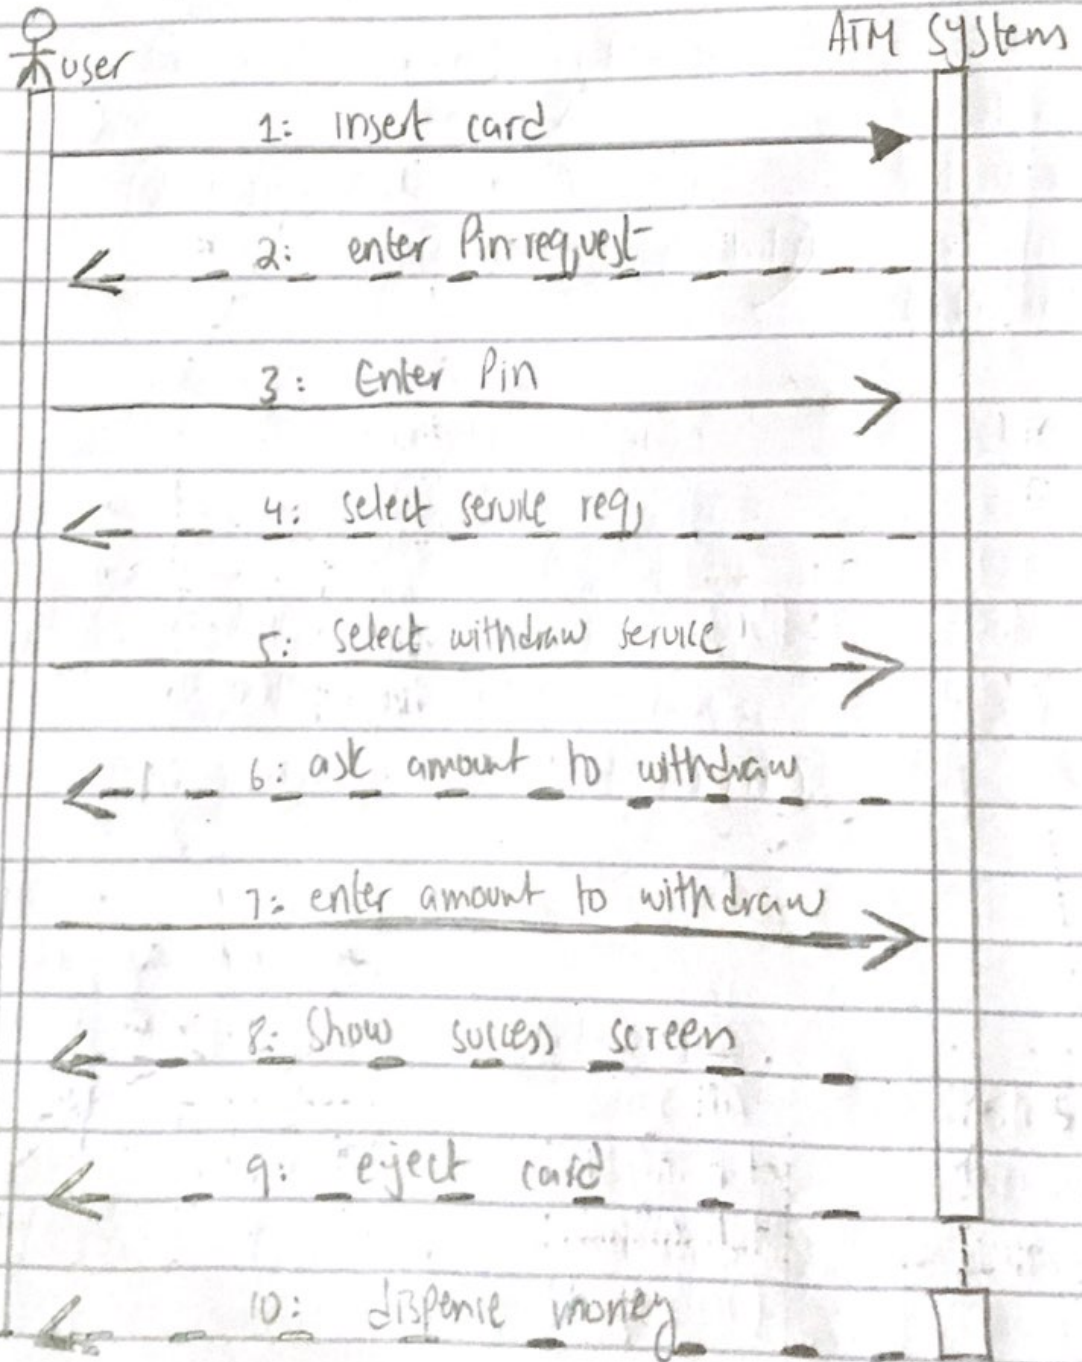 user
ATM System
1: insert card
2: enter Pin request
3: Enter Pin
4: select service req
5: select withdraw service
6: ask amount to withdraw
7: enter amount to withdraw
8: Show success screen
9: eject card
10: dispense money